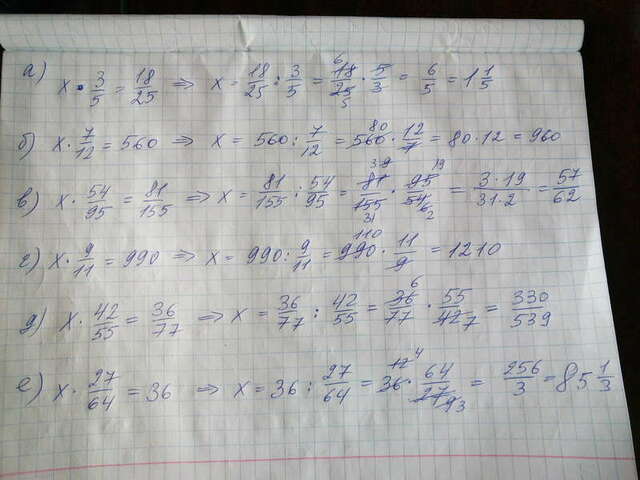 а) x · 3/5 = 18/25 ⇒ x = 18/25 : 3/5 = 18/25 · 5/3 = 6/5 = 1 1/5
б) x · 7/12 = 560 ⇒ x = 560 : 7/12 = 560 · 12/7 = 80 · 12 = 960
в) x · 54/95 = 81/155 ⇒ x = 81/155 : 54/95 = 81/155 · 95/54 = 3 · 19/31 · 2 = 57/62
г) x · 9/11 = 990 ⇒ x = 990 : 9/11 = 990 · 11/9 = 1210
д) x · 42/55 = 36/77 ⇒ x = 36/77 : 42/55 = 36/77 · 55/42 = 330/539
е) x · 27/64 = 36 ⇒ x = 36 : 27/64 = 36 · 64/27 = 256/3 = 85 1/3